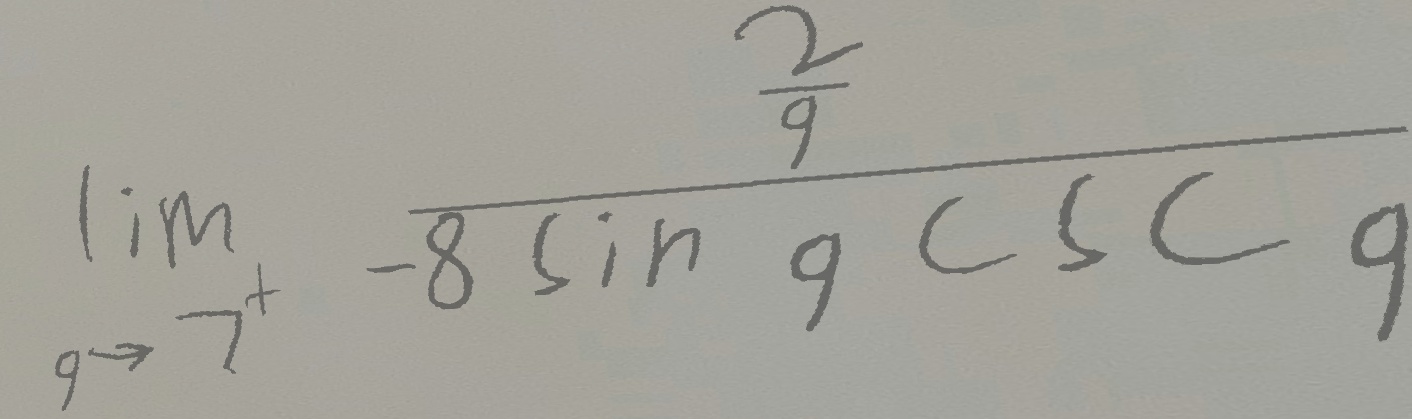 \lim_{q \to 7^+} \frac{\frac{2}{q}}{-8 \sin q \csc q}